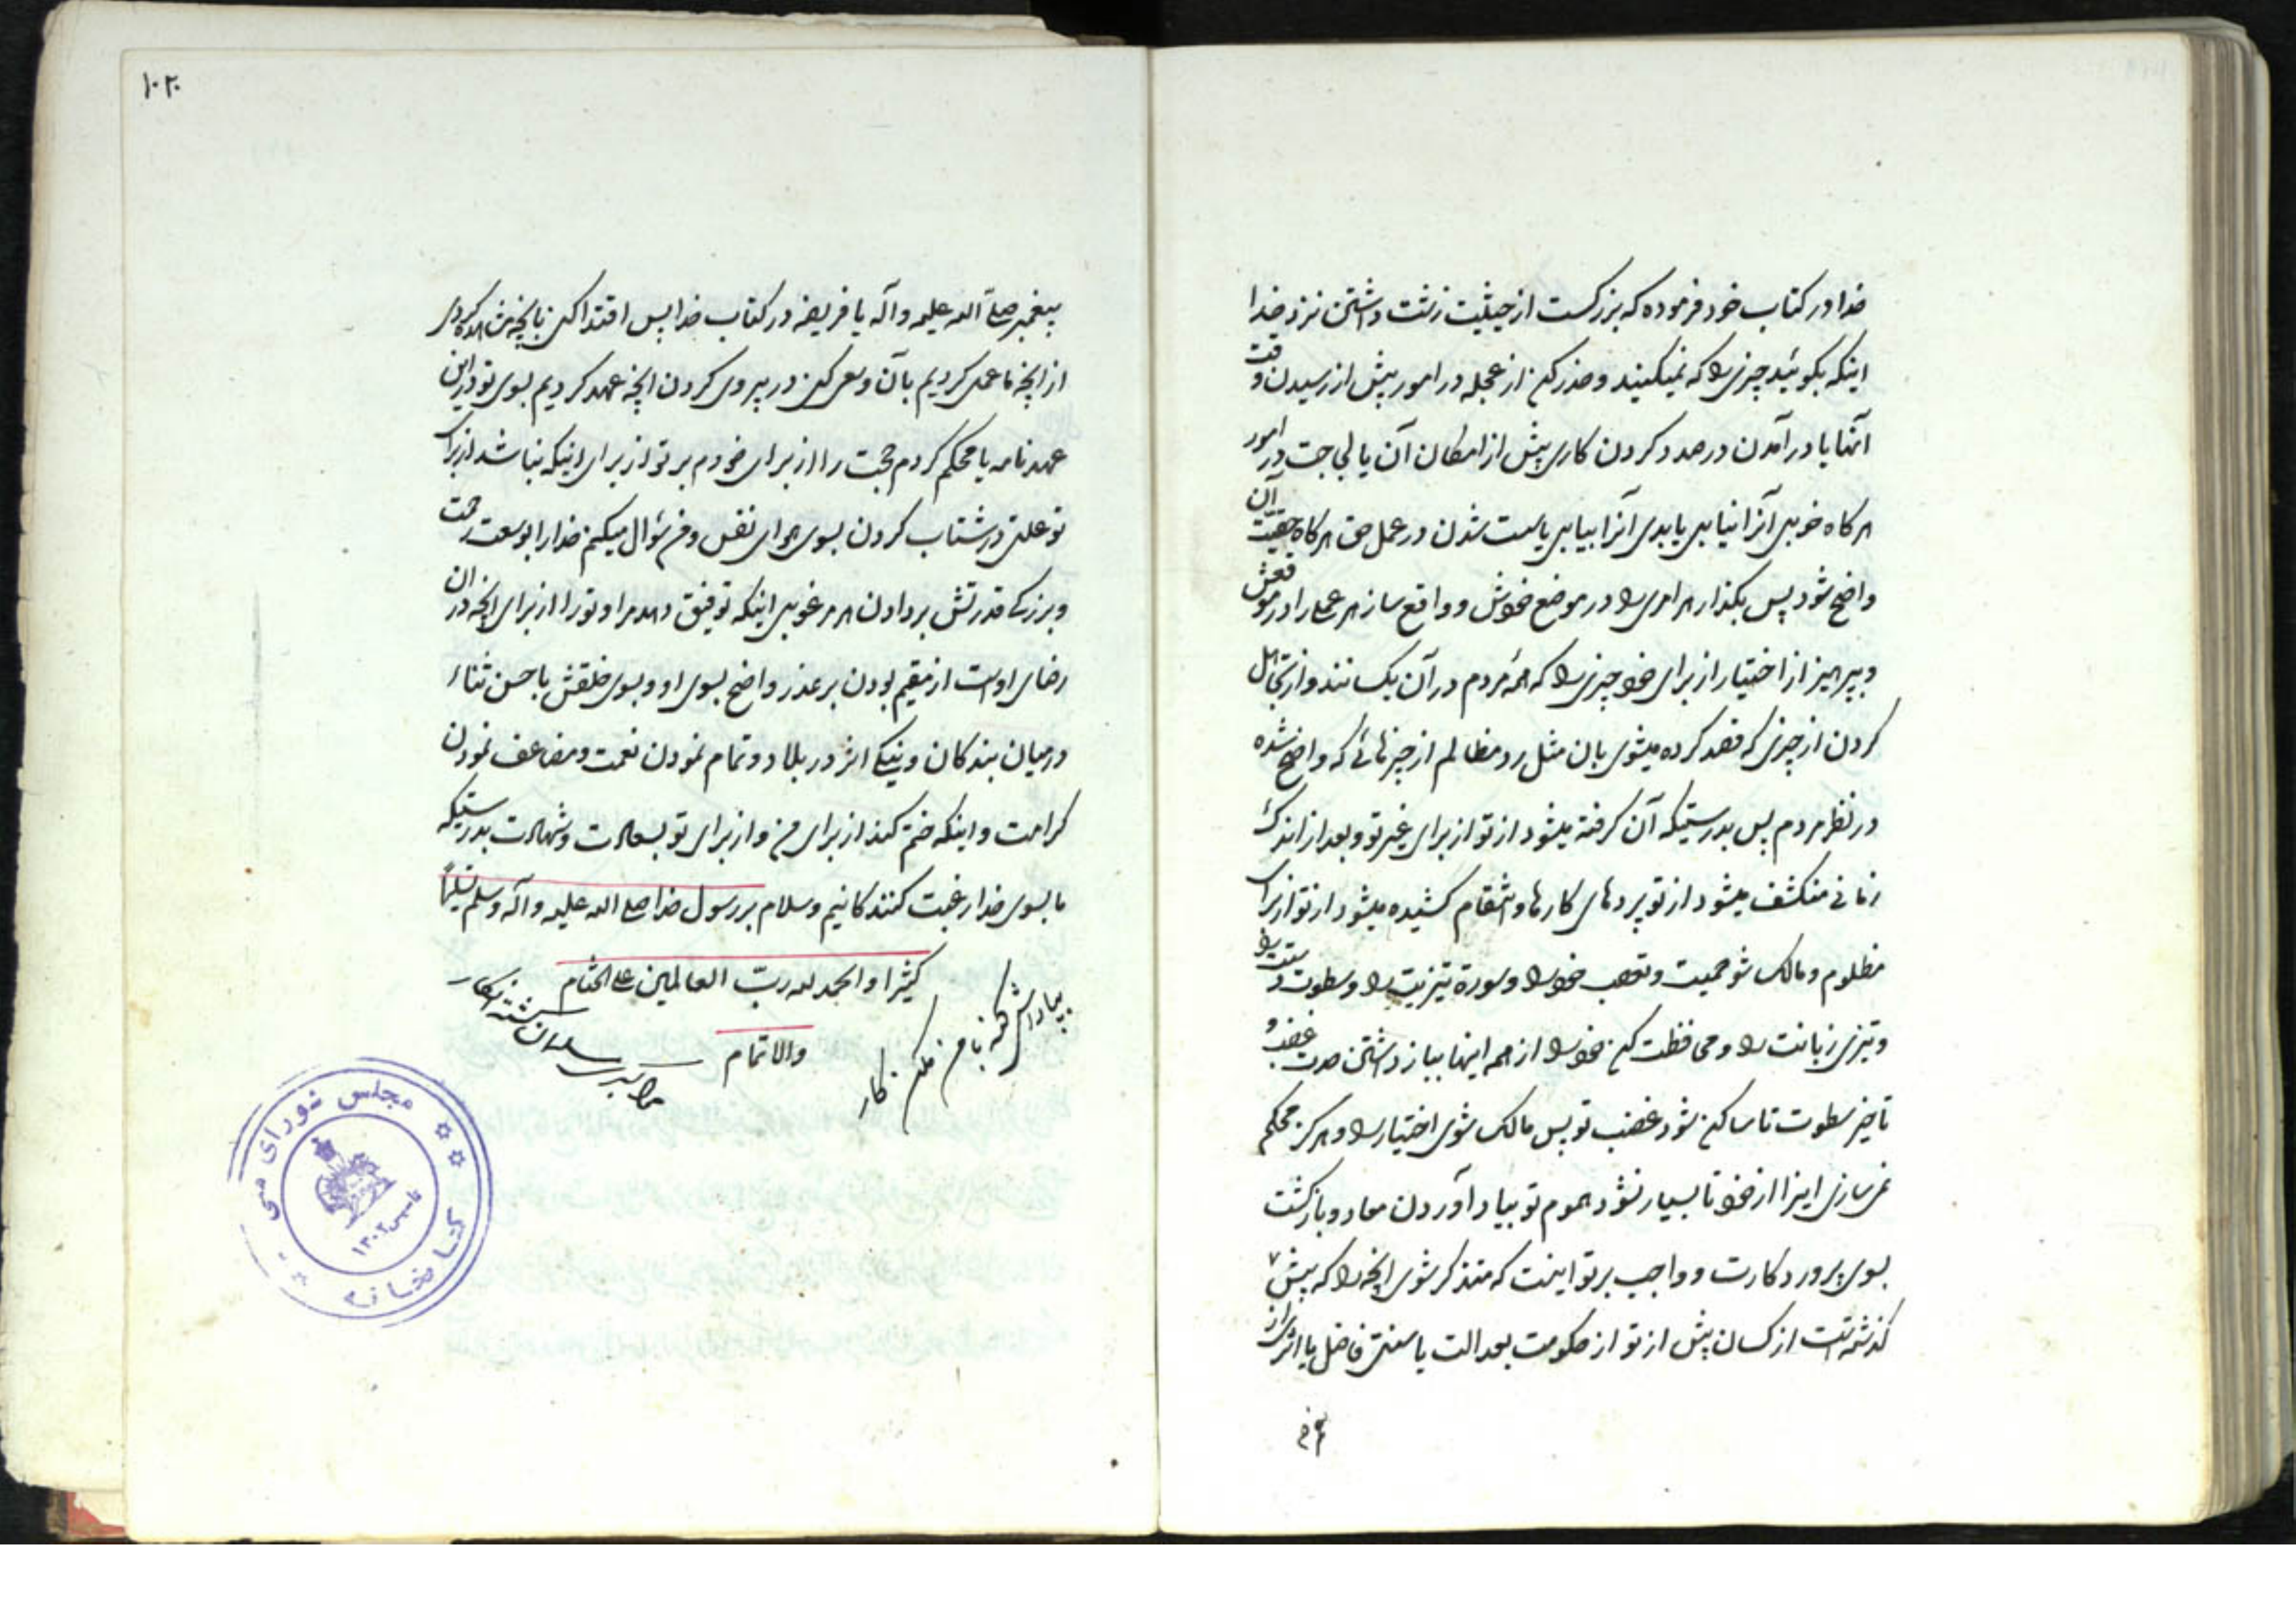 خدا در کتاب خود فرموده که بزرکست از حیثیت زشت داشتن نزد خدا
اینکه بکوئید چیزی را که نمیکنید و حذر کن از عجله در امور پیش از رسیدن وقت
آنها یا در آمدن در صدد کردن کاری پیش از امکان آن یا لجاجت در امور
هر کاه خوبی آنرا نیابی یا بدی آنرا بیابی یا سست شدن در عمل حق هر کاه حقیت آن
واضح شود پس بکذار هر امری را در موضع خودش و واقع ساز هر عملی را در موقعش
و بپرهیز از اختیار از برای خود چیزی را که همه مردم در آن یکسانند و از تجاهل
کردن از چیزی که قصد کرده میشوی بان مثل رد مظالم از چیزهائی که واضح شده
در نظر مردم پس بدرستیکه آن کرفته میشود از تو از برای غیر تو و بعد از اندک
زمانی منکشف میشود از تو پردهای کارها و انتقام کشیده میشود از تو از برای
مظلوم و مالک شو حمیت و تعصب خود را و سورة تیزیت را و سطوت دستت را
و تیزی زبانت را و محافظت کن خود را از همه اینها بباز داشتن حدت غضب و
تاخیر سطوت تا ساکن شود غضب تو پس مالک شوی اختیار را و هرکز محکم
نمی‌سازی اینرا از خود تا بسیار نشود هموم تو بیاد آوردن معاد و بازکشت
بسوی پروردکارت و واجب بر تو اینست که متذکر شوی انچه را که پیش
کذشته است از کسان پیش از تو از حکومت بعدالت یا سنتی فاضل یا اثری از
۱۰۲
پیغمبر صلی الله علیه و آله یا فریضه در کتاب خدا پس اقتدا کن بانچه مشاهده کردی
از انچه ما عمل کردیم بآن و سعی کن در پیروی کردن انچه عهد کردیم بسوی تو در این
عهدنامه یا محکم کردم حجت را از برای خودم بر تو از برای اینکه نباشد از برای
تو علتی در شتاب کردن بسوی هوای نفس و من سؤال میکنم خدا را بوسعت رحمت
و بزرکی قدرتش بر دادن هر مرغوبی اینکه توفیق دهد مرا و تو را از برای انچه در ان
رضای اوست از مقیم بودن بر عذر واضح بسوی او و بسوی خلقش با حسن ثناء
در میان بندکان و نیکی اثر در بلاد و تمام نمودن نعمت و مضاعف نمودن
کرامت و اینکه ختم کند از برای من و از برای تو بسعادت و شهادت بدرستیکه
ما بسوی خدا رغبت کنندکانیم و سلام بر رسول خدا صلی الله علیه و آله و سلم تسلیما
کثیرا و الحمد لله رب العالمین علی الختام
والاتمام
مجلس شورای ملی
کتابخانه
تاسیس ۱۳۰۲